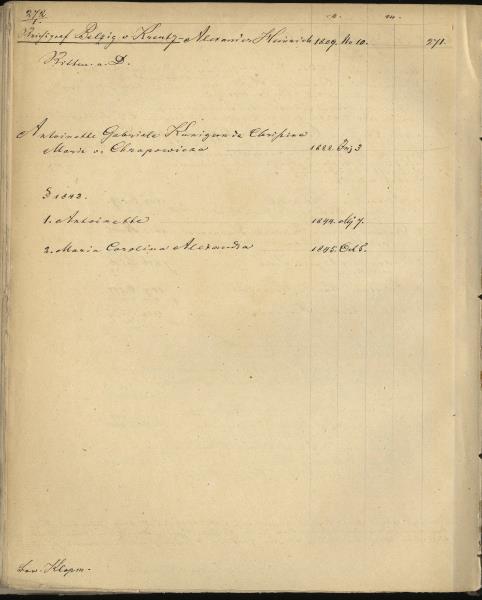 272.
1.
Reichsgraf Belzig v. Kreutz - Alexander Heinrich 1809. Nv 10. 271.
Antoinette Gabriele Kunigunde Christine
Marie v. Chrapowicka 1822. 3
§ 1843.
1. Antoinette 1844. 7.
2. Maria Carolina Alexandra 1845. Oct 5.